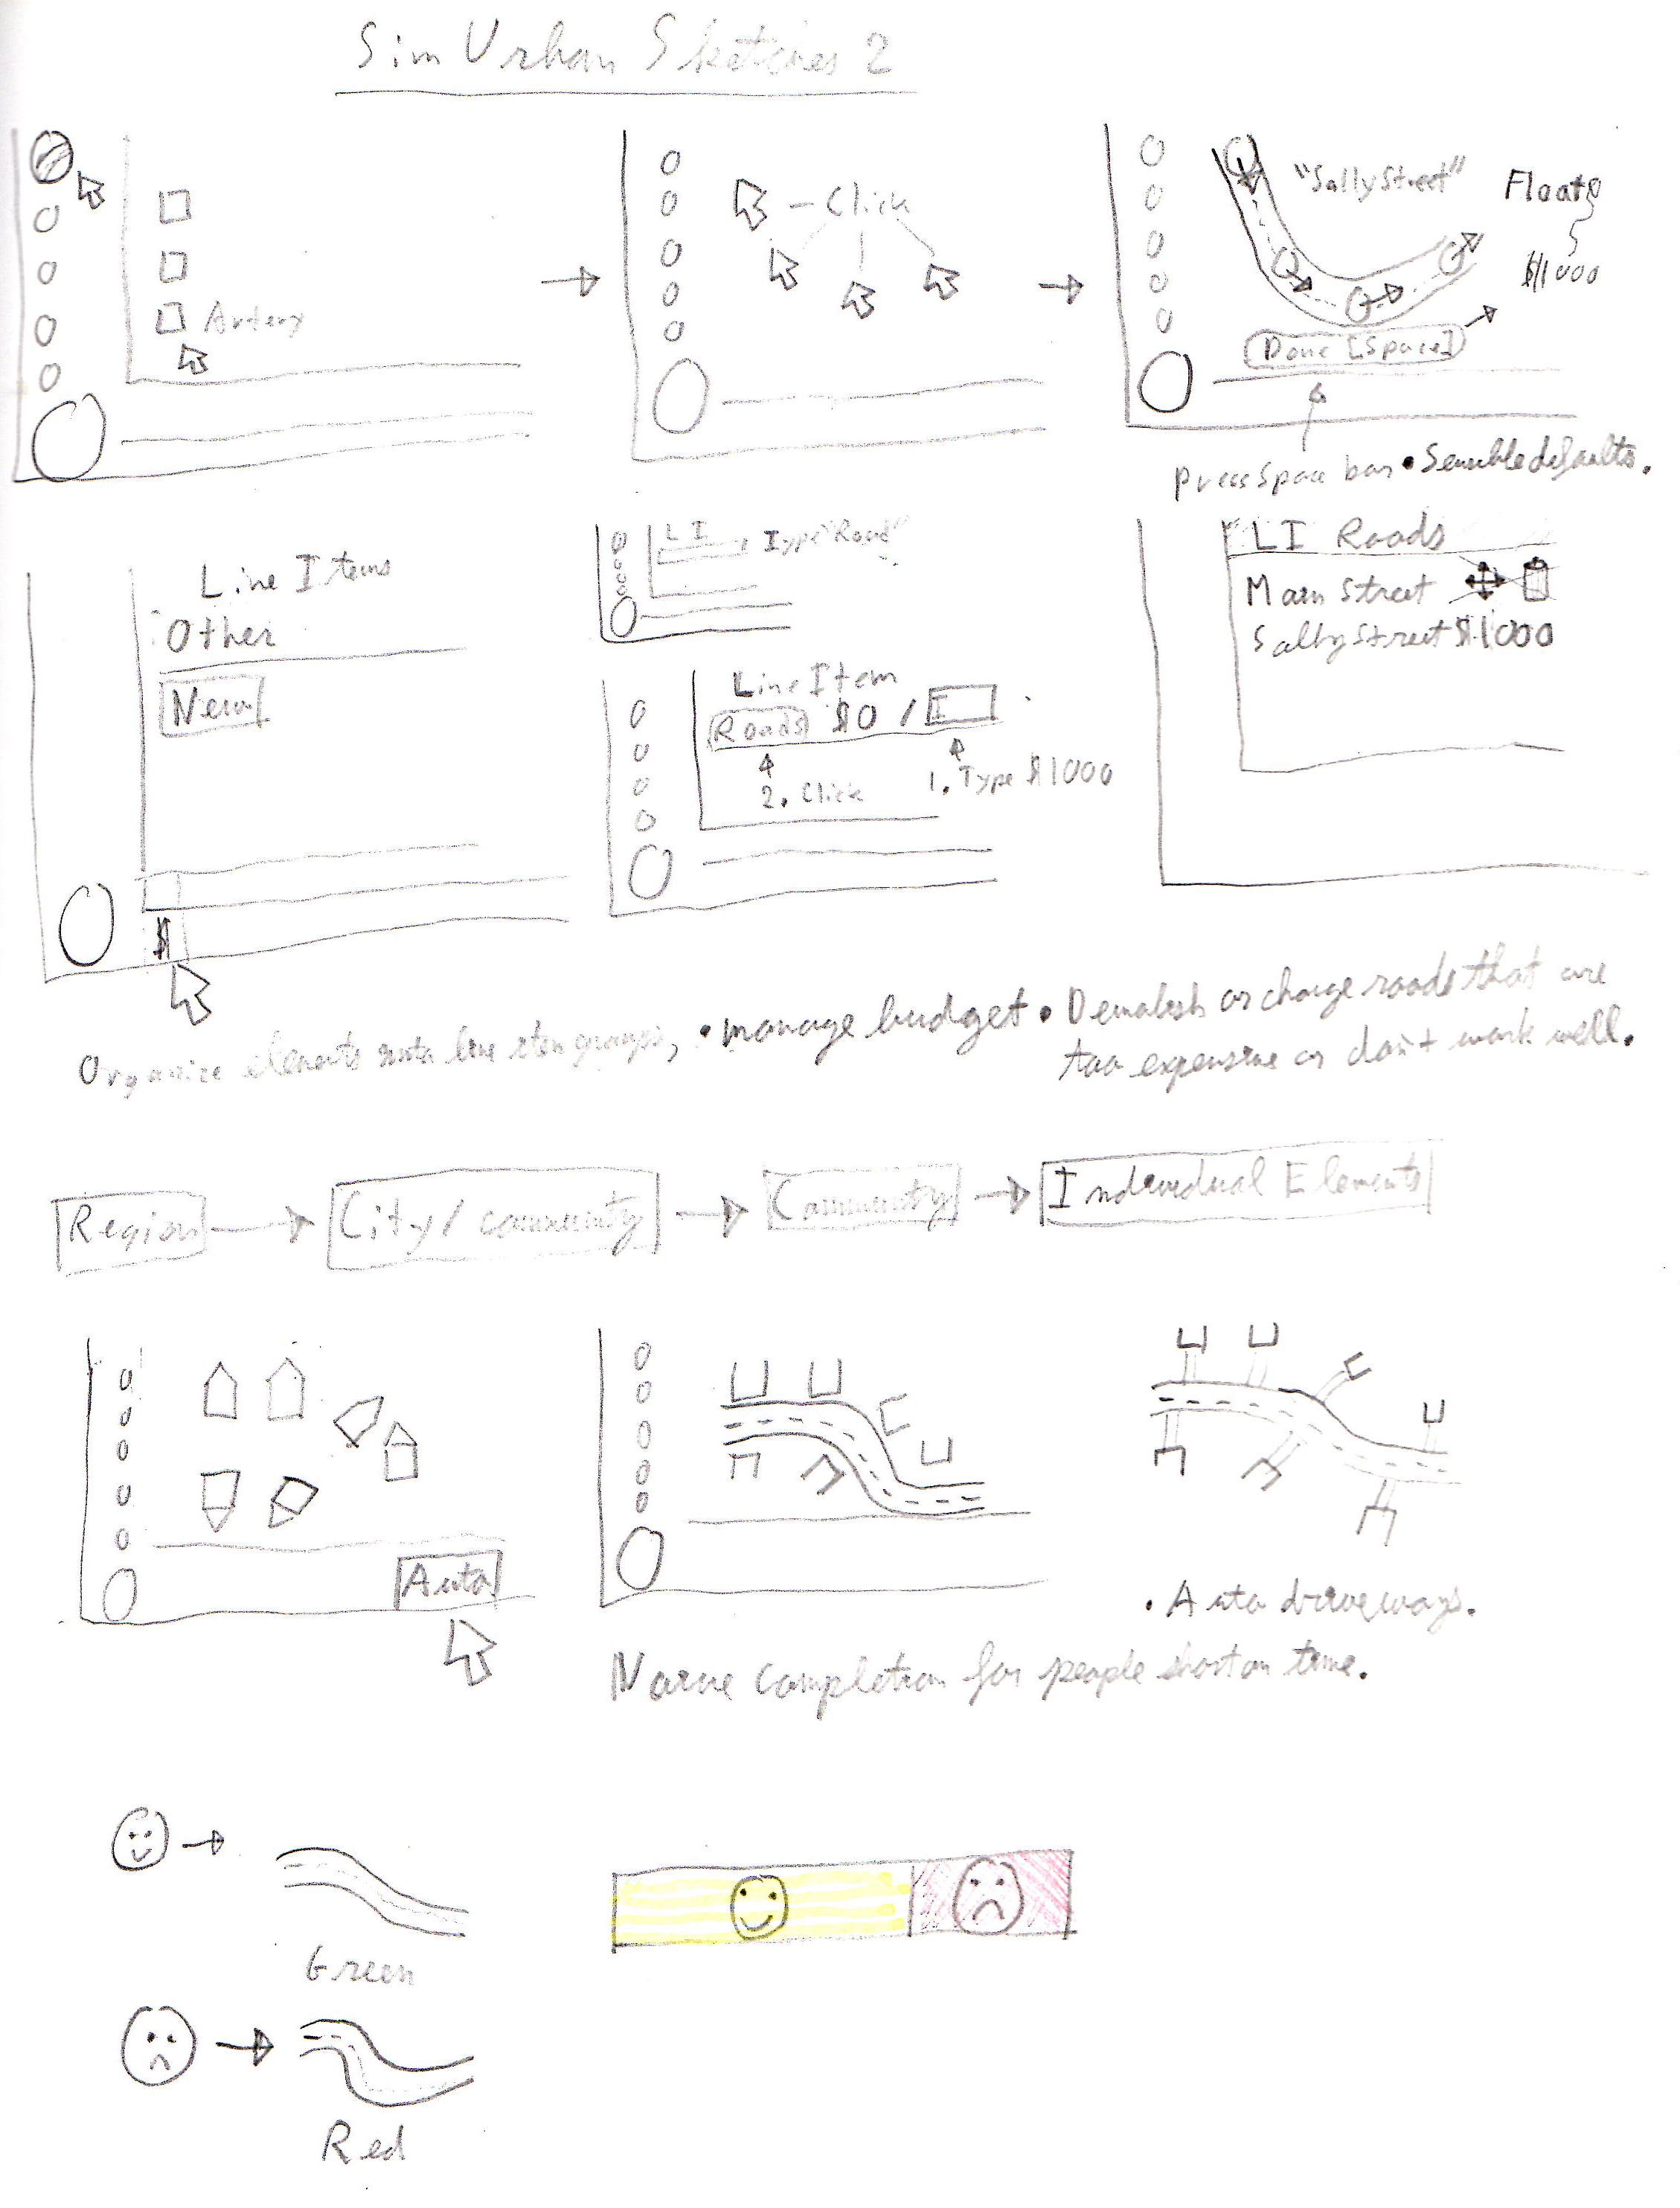 Sim Urban Sketches 2
Artery
- Click
"Sally Street"
Floats
$1000
Done [Space]
Press Space bar • Sensible defaults.
Line Items
Other
New
$
LI
Type "Road"
Line Item
Roads $0 / I
2. Click
1. Type $1000
LI Roads
Main Street
Sally Street $1000
Organize elements into line item groups, • manage budget • Demolish or change roads that are
too expensive or don't work well.
Region
City / community
Community
Individual Elements
Auto
• Auto driveways.
Naive completion for people short on time.
Green
Red